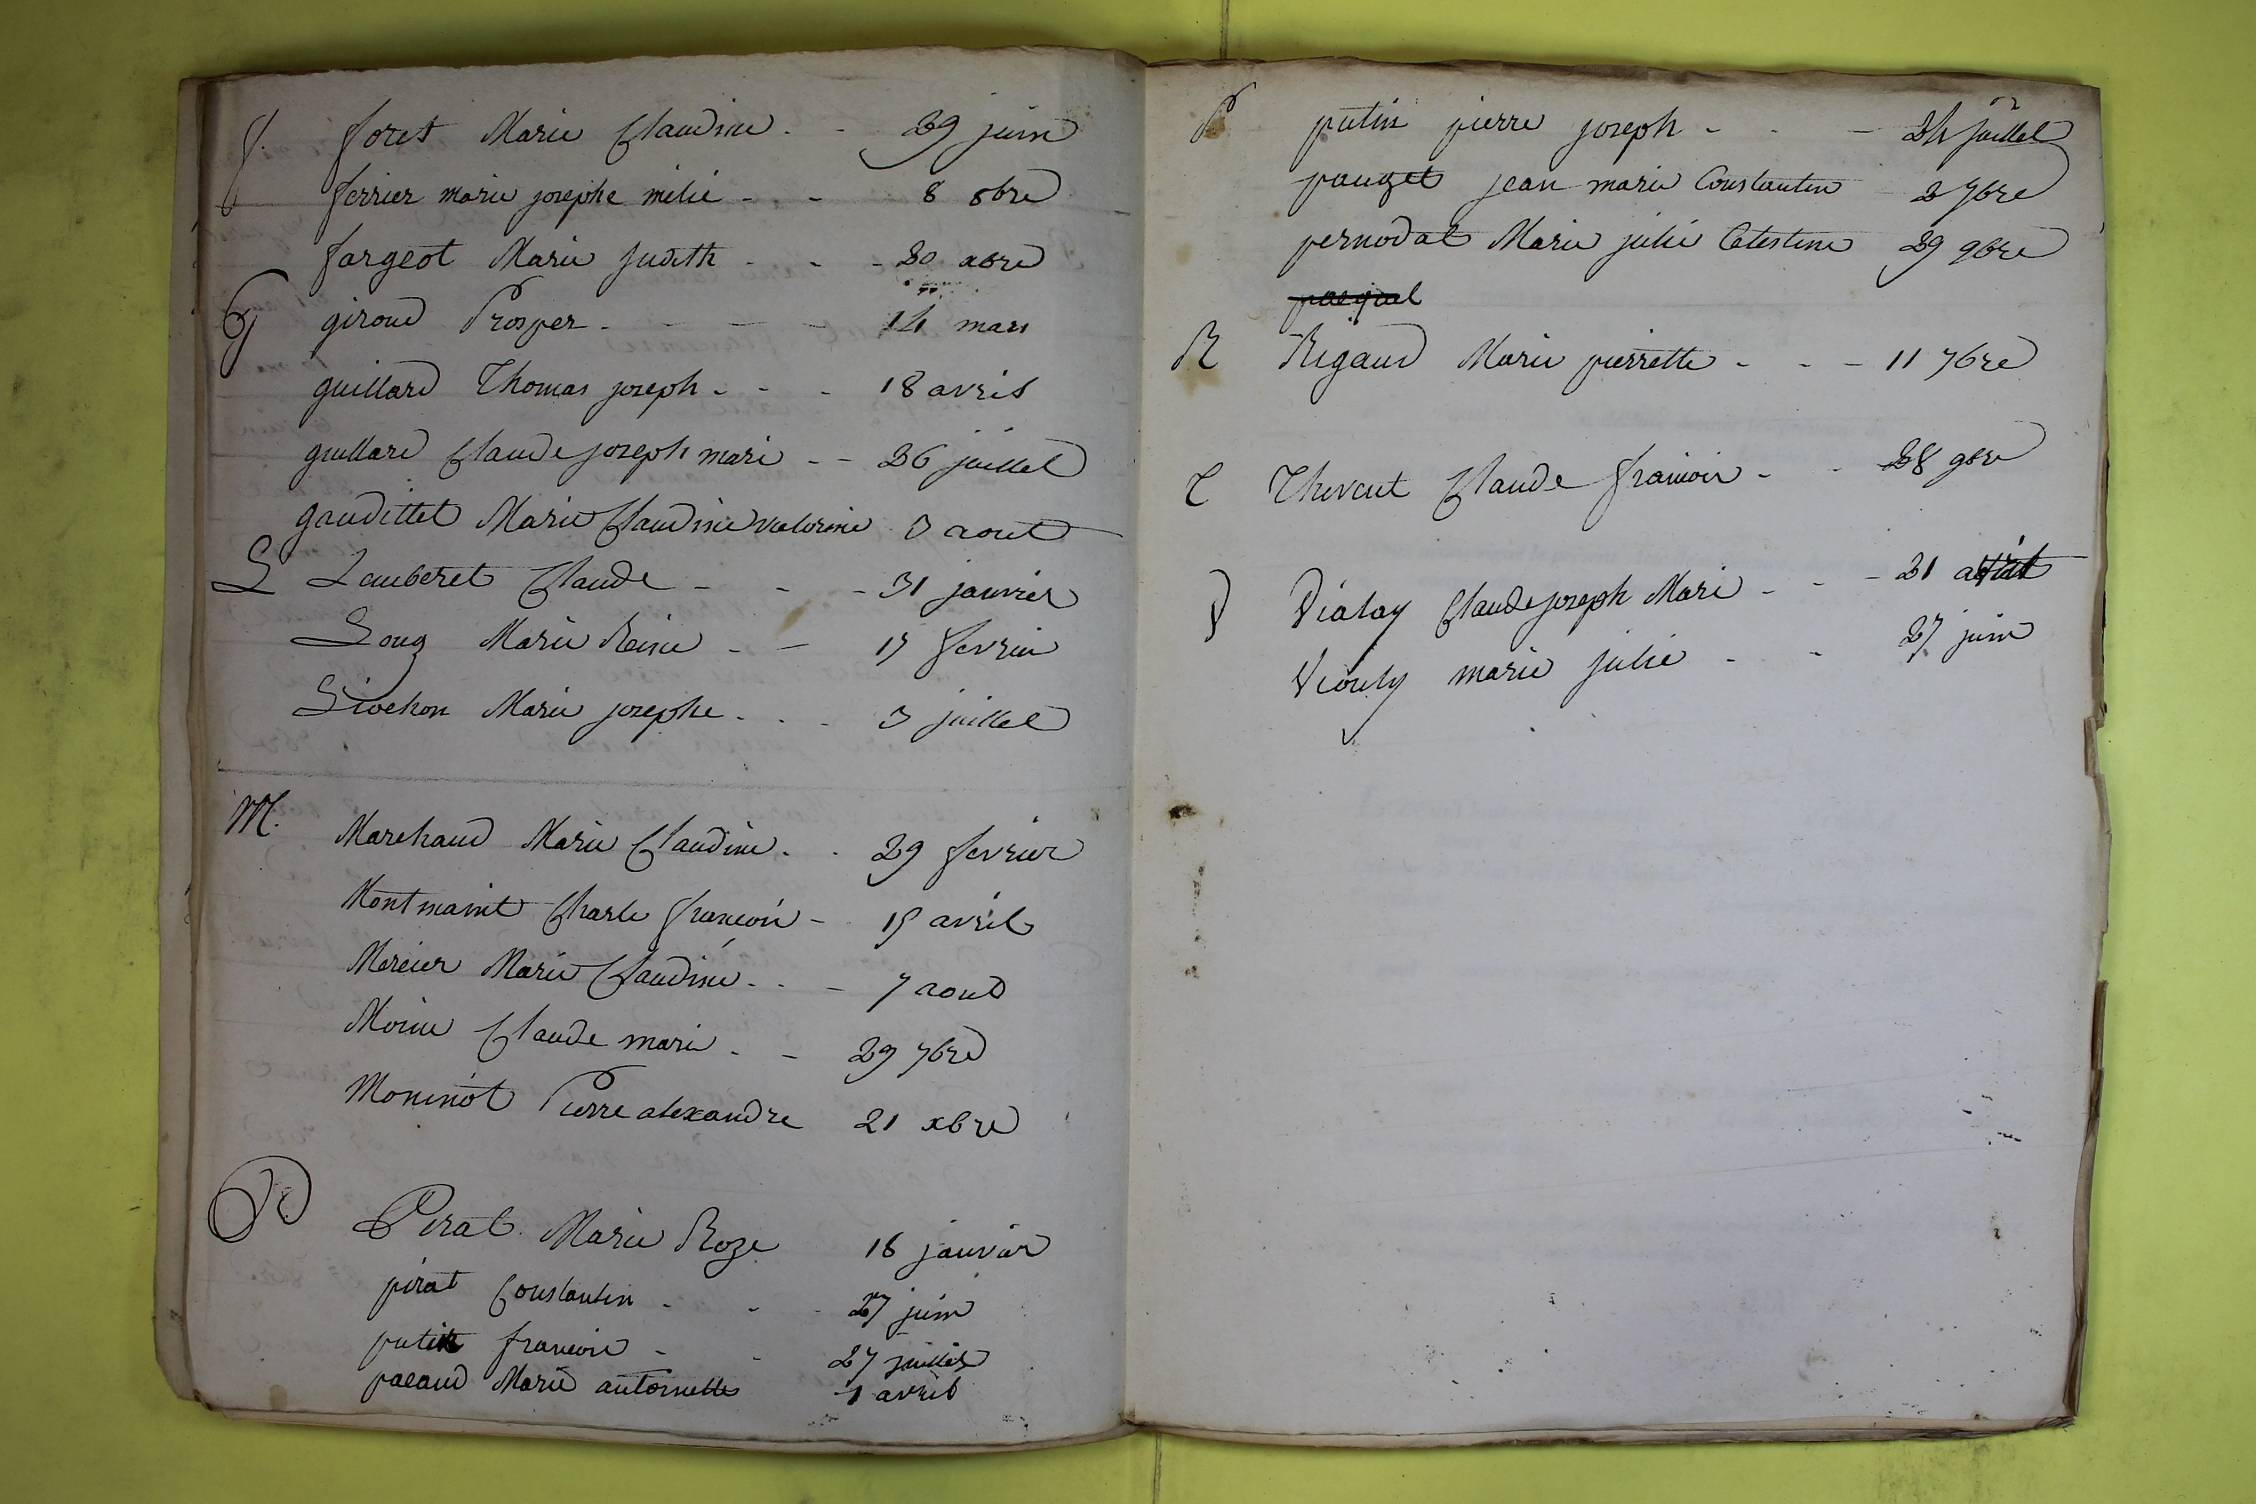 f. foret Marie Claudine - - 29 juin
ferrier marie josephe melie - - 8 8bre
fargeot Marie Judith - - - 20 xbre
G giroud Prosper - - - - 14 mars
guillard Thomas joseph - - - 18 avril
guillard Claude joseph marie - - 26 juillet
gaudillet Marie Claudine valerine 3 aout
L Lamberet Claude - - - 31 janvier
Long Marie Reine - - 17 fevrier
Livechon Marie josephe - - - 3 juillet
M. Marchand Marie Claudine - - 29 fevrier
Montmaint Charle françois - 15 avril
Mercier Marie Claudine - - - 7 aout
Moine Claude marie - - 29 7bre
Moninot Pierre alexandre 21 xbre
P. Pirat Marie Roze 16 janvier
pirat Constantin - - - 27 juin
putin francois - - 27 juillet
pacaud Marie antoinette 1 avril
P putin pierre joseph - - - 24 juillet
pauget jean marie Constantin 2 7bre
pernodat Marie julie Celestine 29 9bre
pasqual
R Rigaud Marie pierrette - - - 11 7bre
T Thevenet Claude francois - - 28 9bre
V Vialay Claude joseph Marie - - - 21
Viouly marie julie - - 27 juin